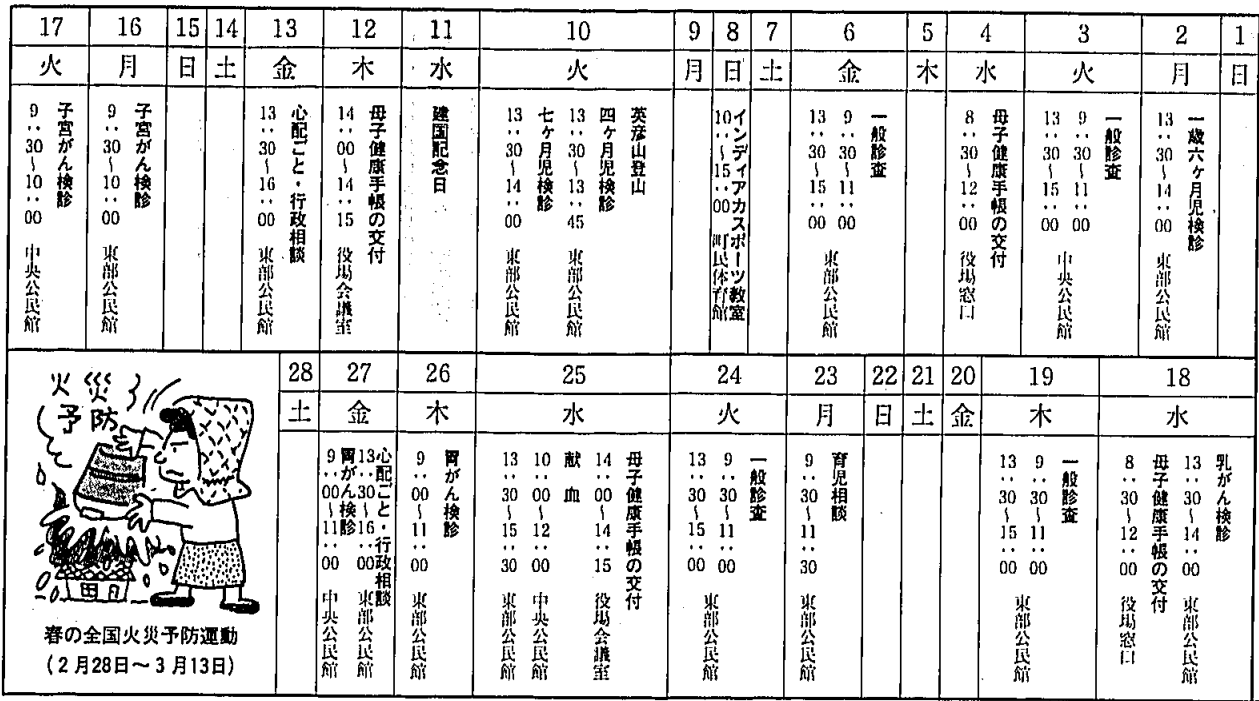 1
日
2
月
一歳六ヶ月児検診
13:30~14:00 東部公民館
3
火
一般診査
9:30~11:00
13:30~15:00 中央公民館
4
水
母子健康手帳の交付
8:30~12:00 役場窓口
5
木
6
金
一般診査
9:30~11:00
13:30~15:00 東部公民館
7
土
8
日
インディアカスポーツ教室
10:~15:00 町民体育館
9
月
10
火
英彦山登山
四ヶ月児検診
13:30~13:45 東部公民館
七ヶ月児検診
13:30~14:00 東部公民館
11
水
建国記念日
12
木
母子健康手帳の交付
14:00~14:15 役場会議室
13
金
心配ごと・行政相談
13:30~16:00 東部公民館
14
土
15
日
16
月
子宮がん検診
9:30~10:00 東部公民館
17
火
子宮がん検診
9:30~10:00 中央公民館
18
水
乳がん検診
13:30~14:00 東部公民館
母子健康手帳の交付
8:30~12:00 役場窓口
19
木
一般診査
9:30~11:00
13:30~15:00 東部公民館
20
金
21
土
22
日
23
月
育児相談
9:30~11:30 東部公民館
24
火
一般診査
9:30~11:00
13:30~15:00 東部公民館
25
水
母子健康手帳の交付
14:00~14:15 役場会議室
献血
10:00~12:00 中央公民館
13:30~15:30 東部公民館
26
木
胃がん検診
9:00~11:00 東部公民館
27
金
心配ごと・行政相談
13:30~16:00 東部公民館
胃がん検診
9:00~11:00 中央公民館
28
土
火災
予防
春の全国火災予防運動
(2月28日~3月13日)